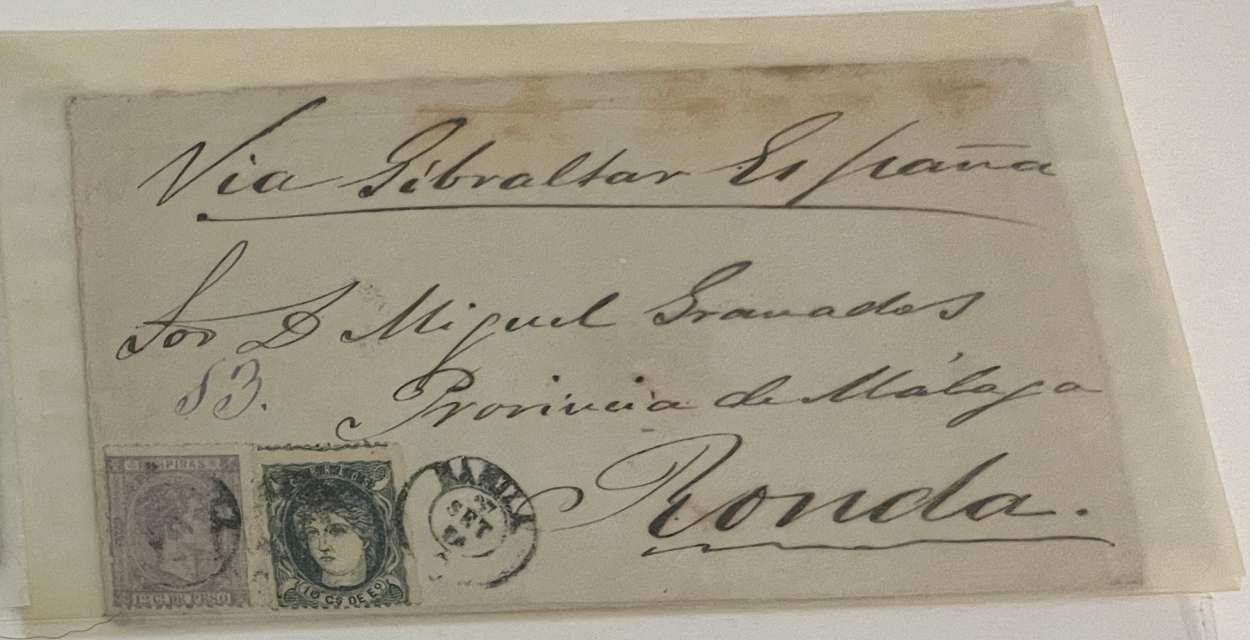 Via Gibraltar España
Sor D Miguel Granados
83.
Provincia de Málaga
Ronda.
FILIPINAS
CS DE PESO
10 CS DE EO
MANILA
27
SET